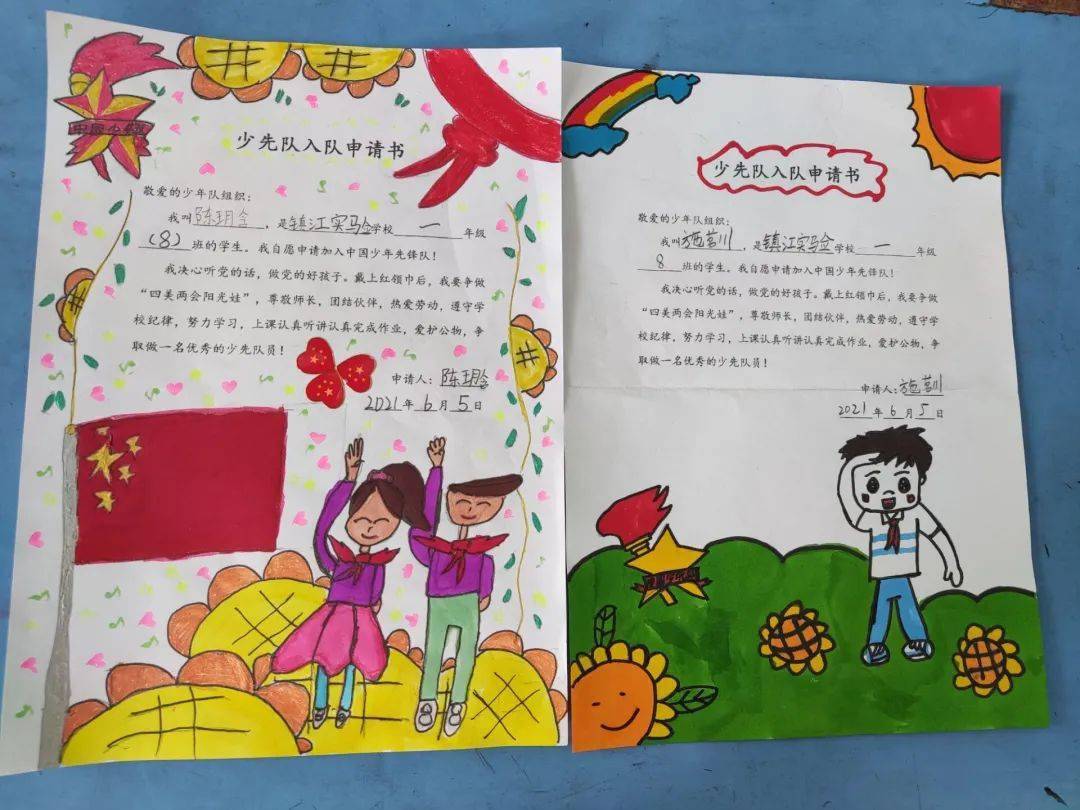 中国少先队
少先队入队申请书
敬爱的少年队组织：
我叫陈玥含，是镇江实验学校一年级
（8）班的学生。我自愿申请加入中国少年先锋队！
我决心听党的话，做党的好孩子。戴上红领巾后，我要争做
“四美两会阳光娃”，尊敬师长，团结伙伴，热爱劳动，遵守学
校纪律，努力学习，上课认真听讲认真完成作业，爱护公物，争
取做一名优秀的少先队员！
申请人：陈玥含
2021年6月5日
少先队入队申请书
敬爱的少年队组织：
我叫施营川，是镇江实验学校一年级
8班的学生。我自愿申请加入中国少年先锋队！
我决心听党的话，做党的好孩子。戴上红领巾后，我要争做
“四美两会阳光娃”，尊敬师长，团结伙伴，热爱劳动，遵守学
校纪律，努力学习，上课认真听讲认真完成作业，爱护公物，争
取做一名优秀的少先队员！
申请人：施营川
2021年6月5日